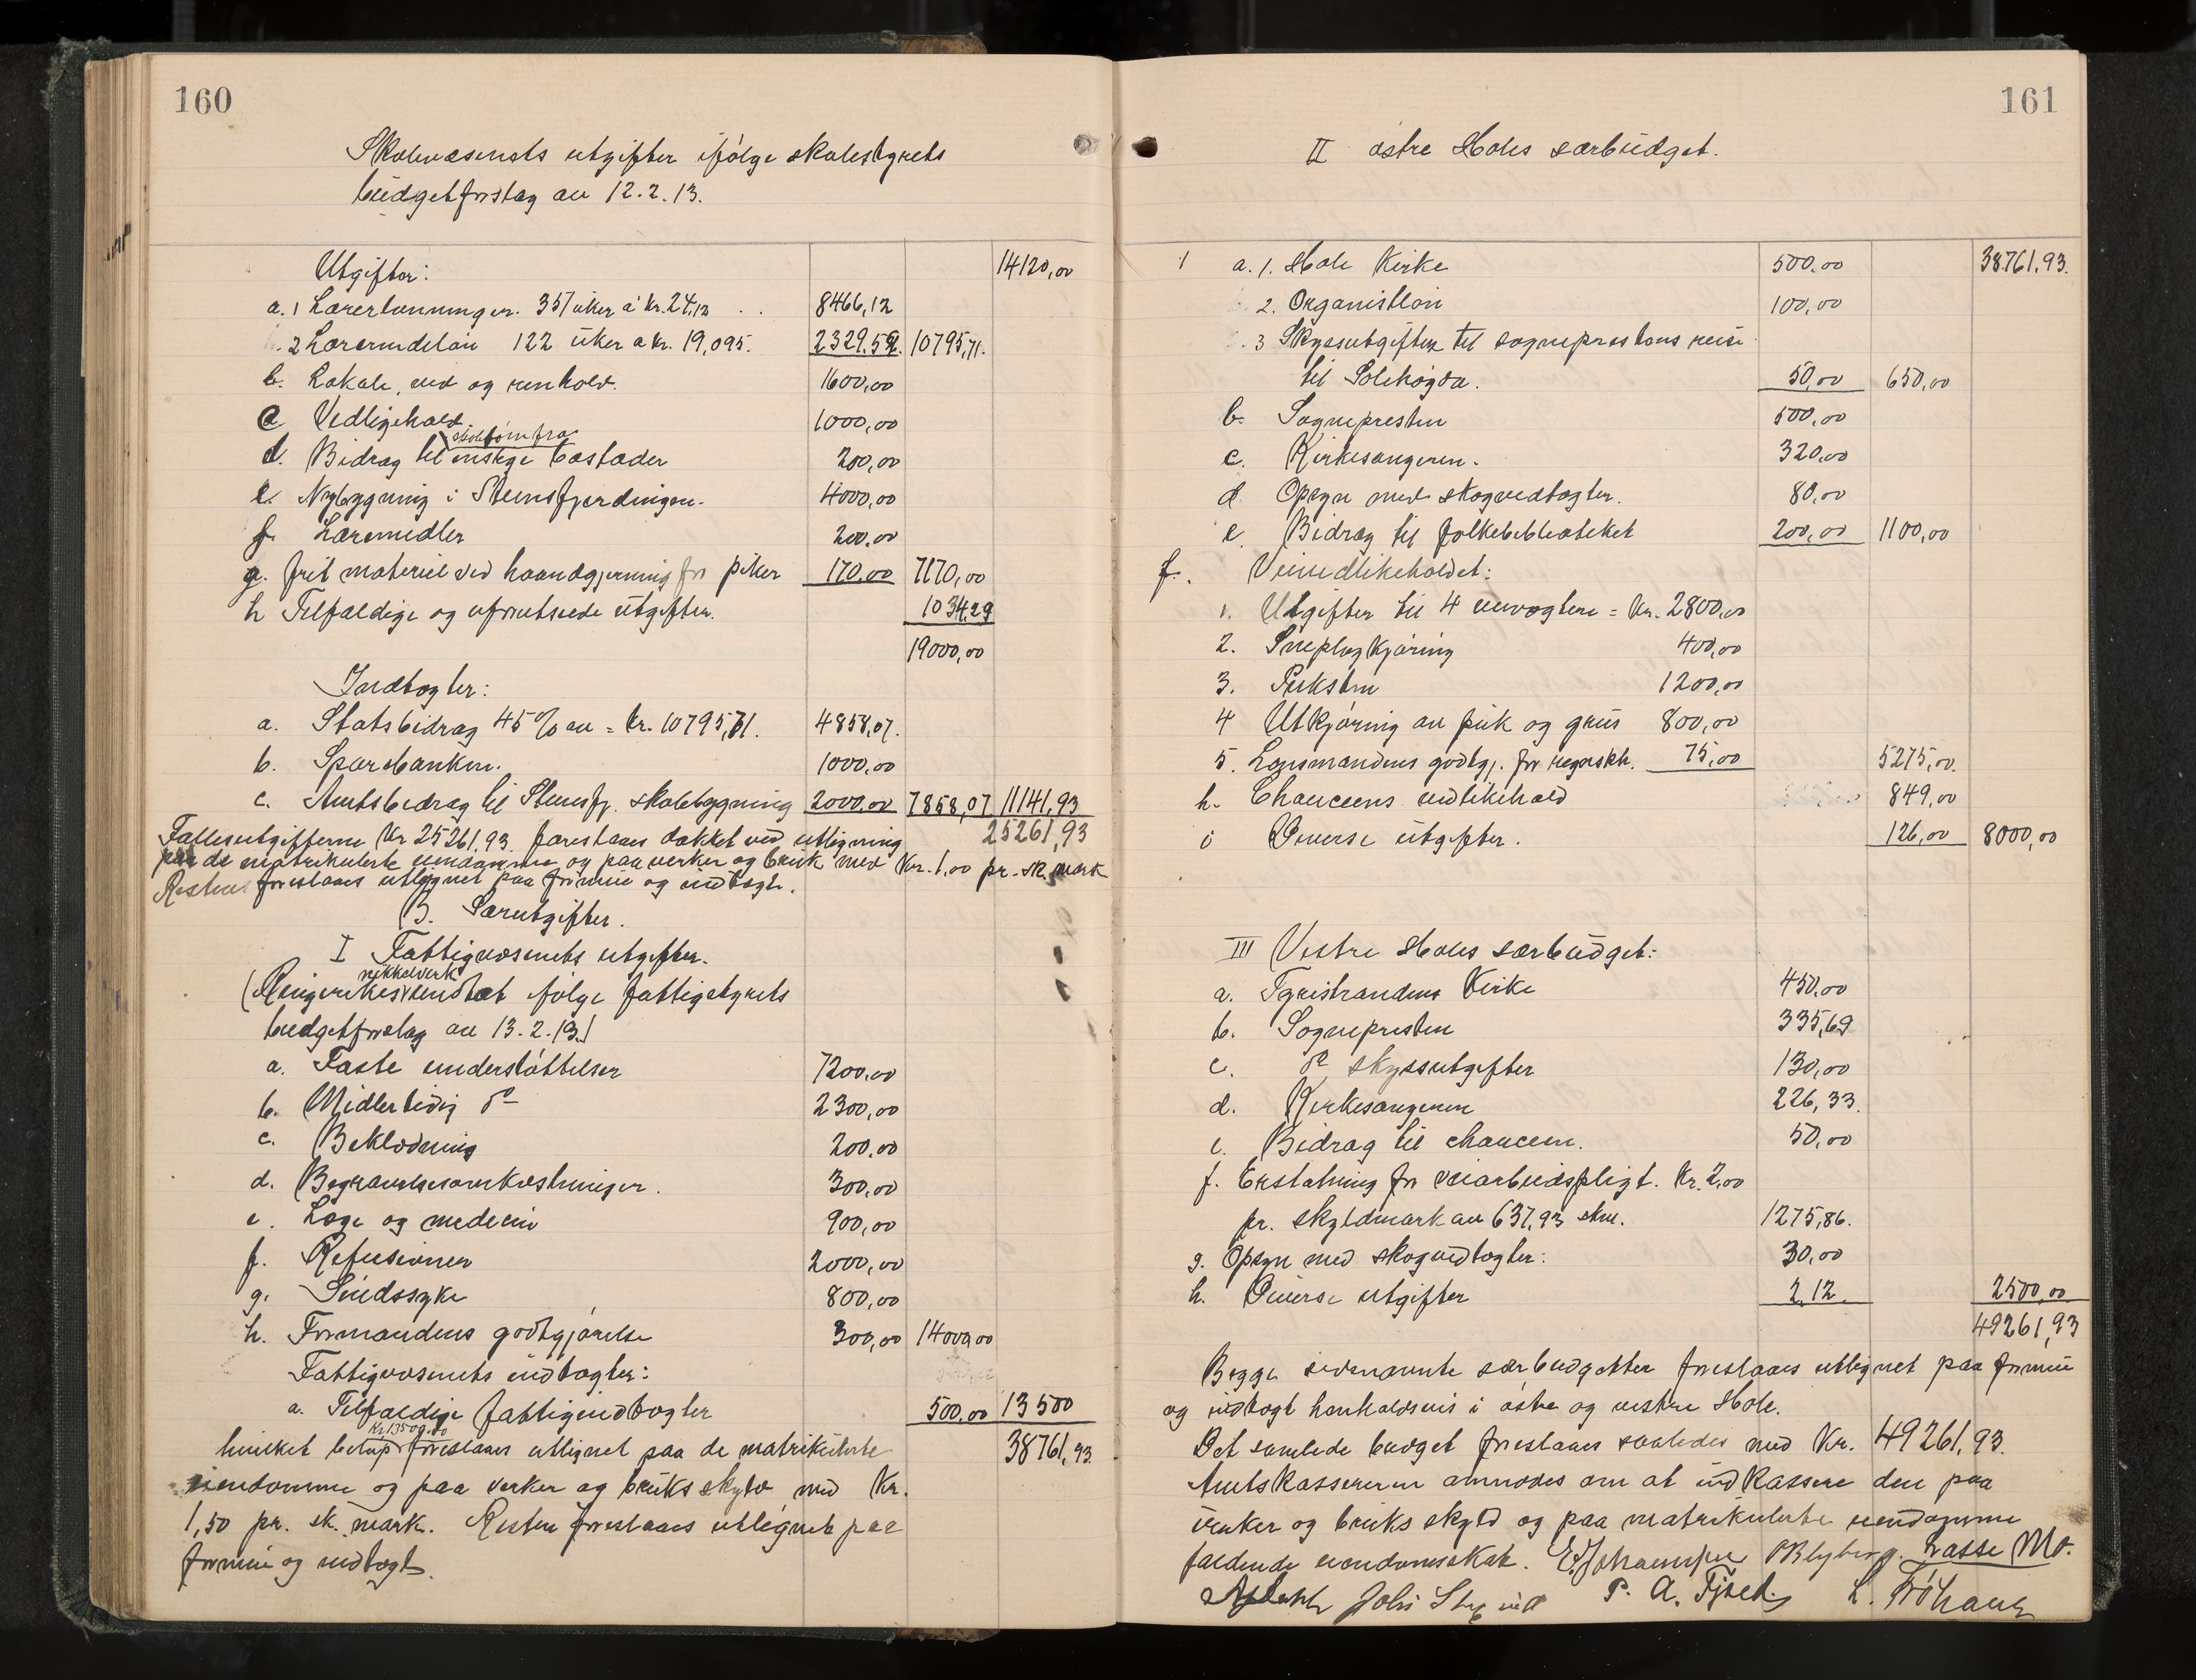 160
Skolevæsenets utgifter ifølge skolestyrets
budgetforslag av 12.2.13.
Utgifter: 14120,00
a. 1 Lærerlønninger. 351 uker á kr. 24,12 . . 8466,12
2 Lærerindeløn 122 uker a kr. 19,095. 2329,59. 10795,71.
b. Lokale, ved og renhold. 1600,00
c Vedligehold 1000,00
skolebørn fra
d. Bidrag til enslige bosteder 200,00
e. Nybygning i Stensfjerdingen. 4000,00
f. Læremidler 200,00
g. frit materiel ved haandgjerning for piker 170.00 7170,00
h Tilfældige og uforutseede utgifter. 1034,29
19000,00
Indtægter:
a. Statsbidrag 45% av = kr. 10795,71. 4858,07.
b. Sparebanken. 1000,00
c. Amtsbidrag til Stensfj. skolebygning 2000.00 7858,07 11141,93
Fællesutgifterne Kr 25261.93. foreslaaes dækket ved utligning 25261,93
paa de matrikulerte eiendomme og paa verker og bruk med Kr. 1,00 pr. sk. mark
Resten foreslaaes utlignet paa formue og indtægt.
B. Særutgifter.
I Fattigvæsenets utgifter.
nikkelverk
(Ringerikes undtat ifølge fattigstyrets
budgetforslag av 13.2.13.)
a. Faste understøttelser 7200,00
b. Midlertidig do 2300,00
c. Beklædning 200.00
d. Begravelsesomkostninger. 300,00
e. Læge og medecin 900,00
f. Refusioner 2000,00
g. Sindssyke 800,00
h. Formandens godtgjørelse 300,00 14000,00
Fattigvæsenets indtægter:
a. Tilfældige fattigindtægter 500.00 13500
Kr 13500.00
hvilket beløp foreslaaes utlignet paa de matrikulerte 38761,93
eiendomme og paa verker og bruks skyld med Kr.
1,50 pr. sk. mark. Resten foreslaaes utlignet paa
formue og indtægt.
161
II østre Holes særbudget.
1 a. 1. Hole Kirke 500.00 38761,93.
2. Organistløn 100,00
3 Skyssutgifter til sogneprestens reise
til Solihøgda. 50,00 650,00
b. Sognepresten 500,00
c. Kirkesangeren. 320,00
d Opsyn med skogvedtægter. 80,00
e. Bidrag til folkebiblioteket 200,00 1100,00
f. Veivedlikeholdet:
1. Utgifter til 4 veivogtere = Kr. 2800,00
2. Sneplogkjøring 400,00
3. Puksten 1200,00
4 Utkjøring av puk og grus 800,00
5. Lensmandens godtgj. for regnskh. 75,00 5275,00.
h. Chauceens vedlikehold 849,00
i Diverse utgifter. 126,00 8000,00
III Vestre Holes særbudget:
a. Tyristrandens Kirke 450.00
b. Sognepresten 335,69
c. do skyssutgifter 130,00
d. Kirkesangeren 226,33.
e. Bidrag til chauceen. 50,00
f. Erstatning for veiarbeidspligt. Kr. 2,00
pr. skyldmark av 637,93 skm. 1275,86.
g. Opsyn med skogvedtægter: 30,00
h. Diverse utgifter 2,12. 2500,00
49261,93
Begge sidenævnte særbudgetter foreslaaes utlignet paa formue
og indtægt henholdsvis i østre og vestre Hole.
Det samlede budget foreslaaes saaledes med Kr. 49261,93.
Amtskassereren anmodes om at indkassere den paa
verker og bruks skyld og paa matrikulerte eiendomme
faldende eiendomsskat. E. Johannessen O Blyberg. Lasse Mo.
P. A. Fjeld L. Frøhaug